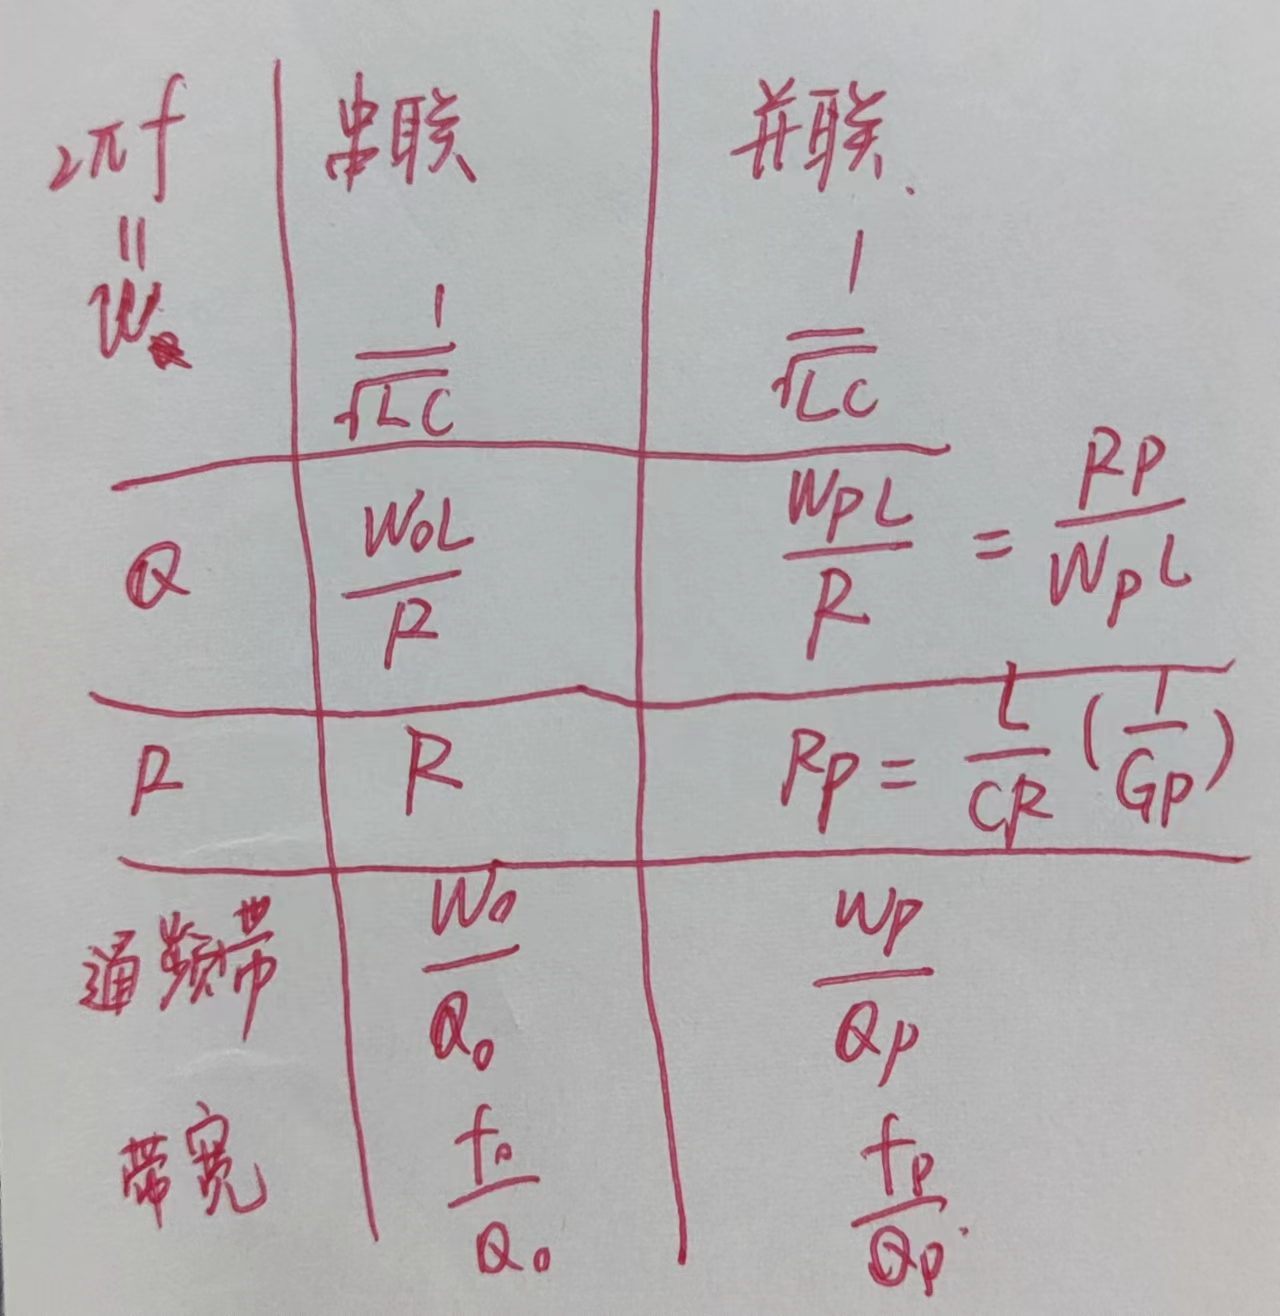 2πf 串联 并联
=
W 1/√LC 1/√LC
Q W₀L/R WpL/R = Rp/WpL
R R Rp = L/CR (1/Gp)
通频带 W₀/Q₀ Wp/Qp
带宽 f₀/Q₀ fp/Qp